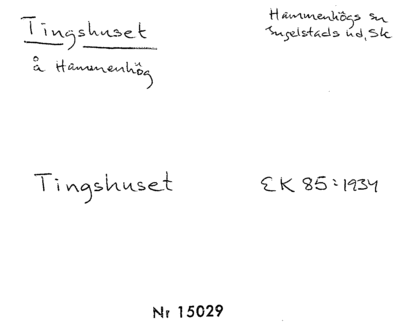 Tingshuset
å Hammenhög
Hammenhögs sn
Ingelstads hd, Sk
Tingshuset
EK 85:1934
Nr 15029